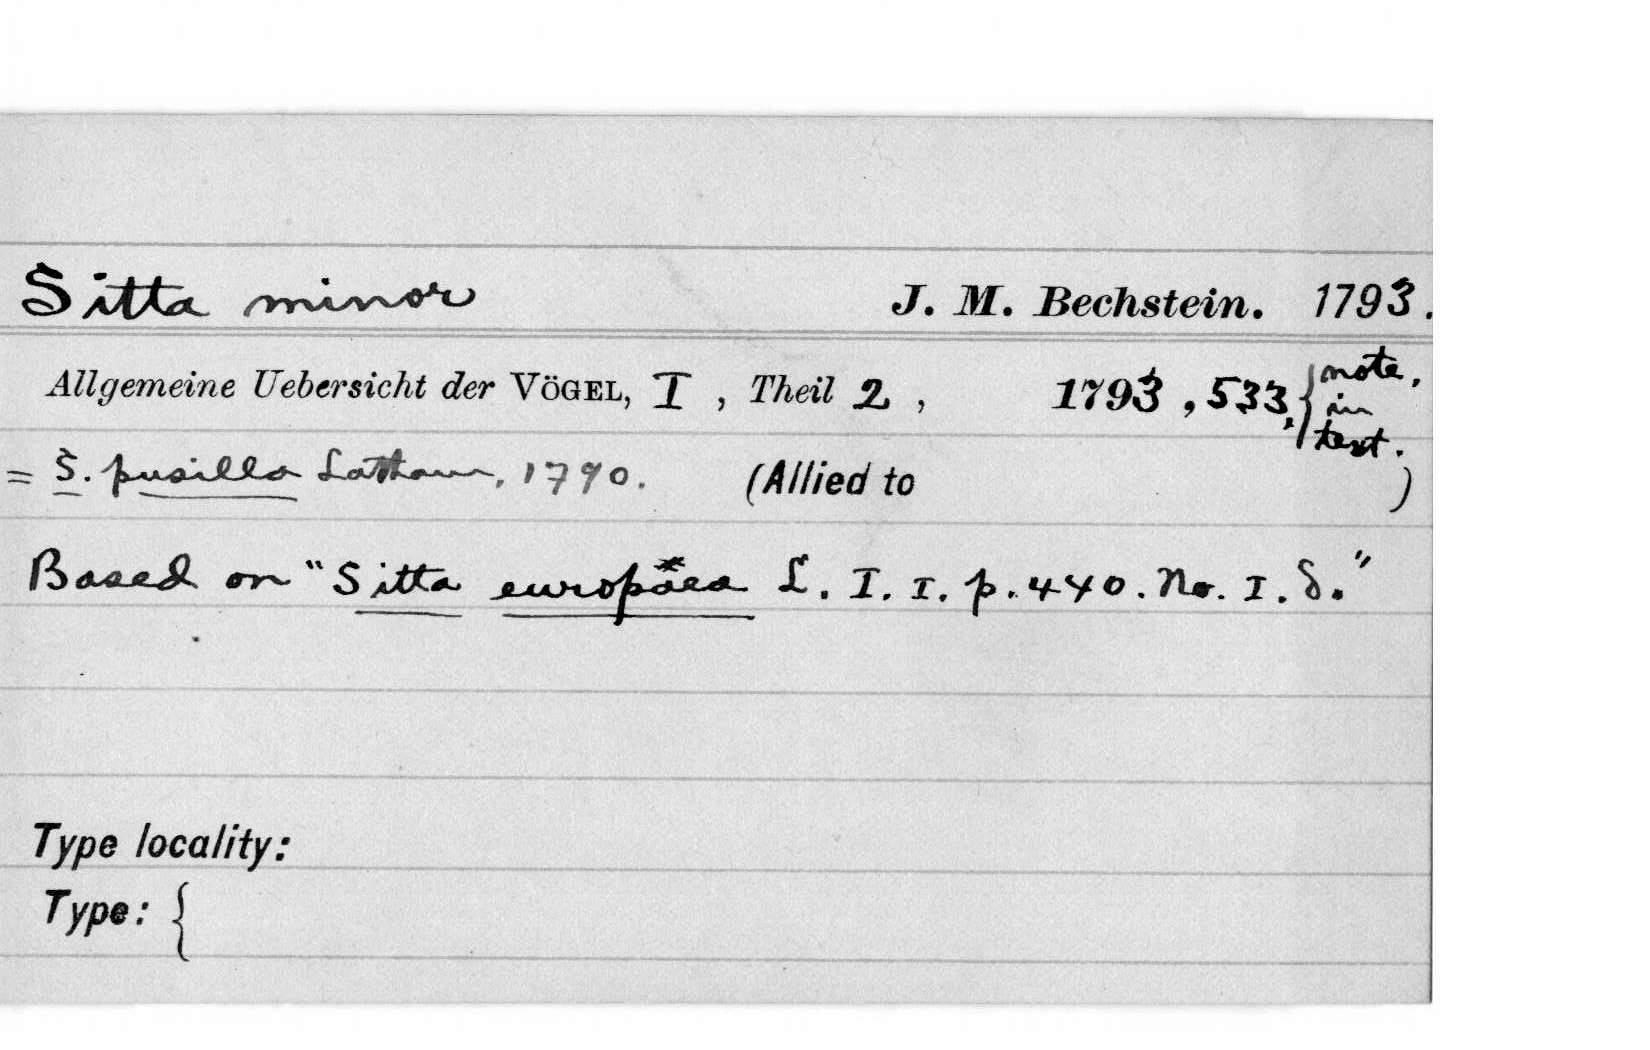 Sitta minor J. M. Bechstein. 1793.
Allgemeine Uebersicht der VÖGEL, I, Theil 2, 1793, 533. { note, in text.
= S. pusilla Latham, 1790. (Allied to )
Based on "Sitta europäea L. I. I. p. 440. No. I. δ."
Type locality:
Type: {